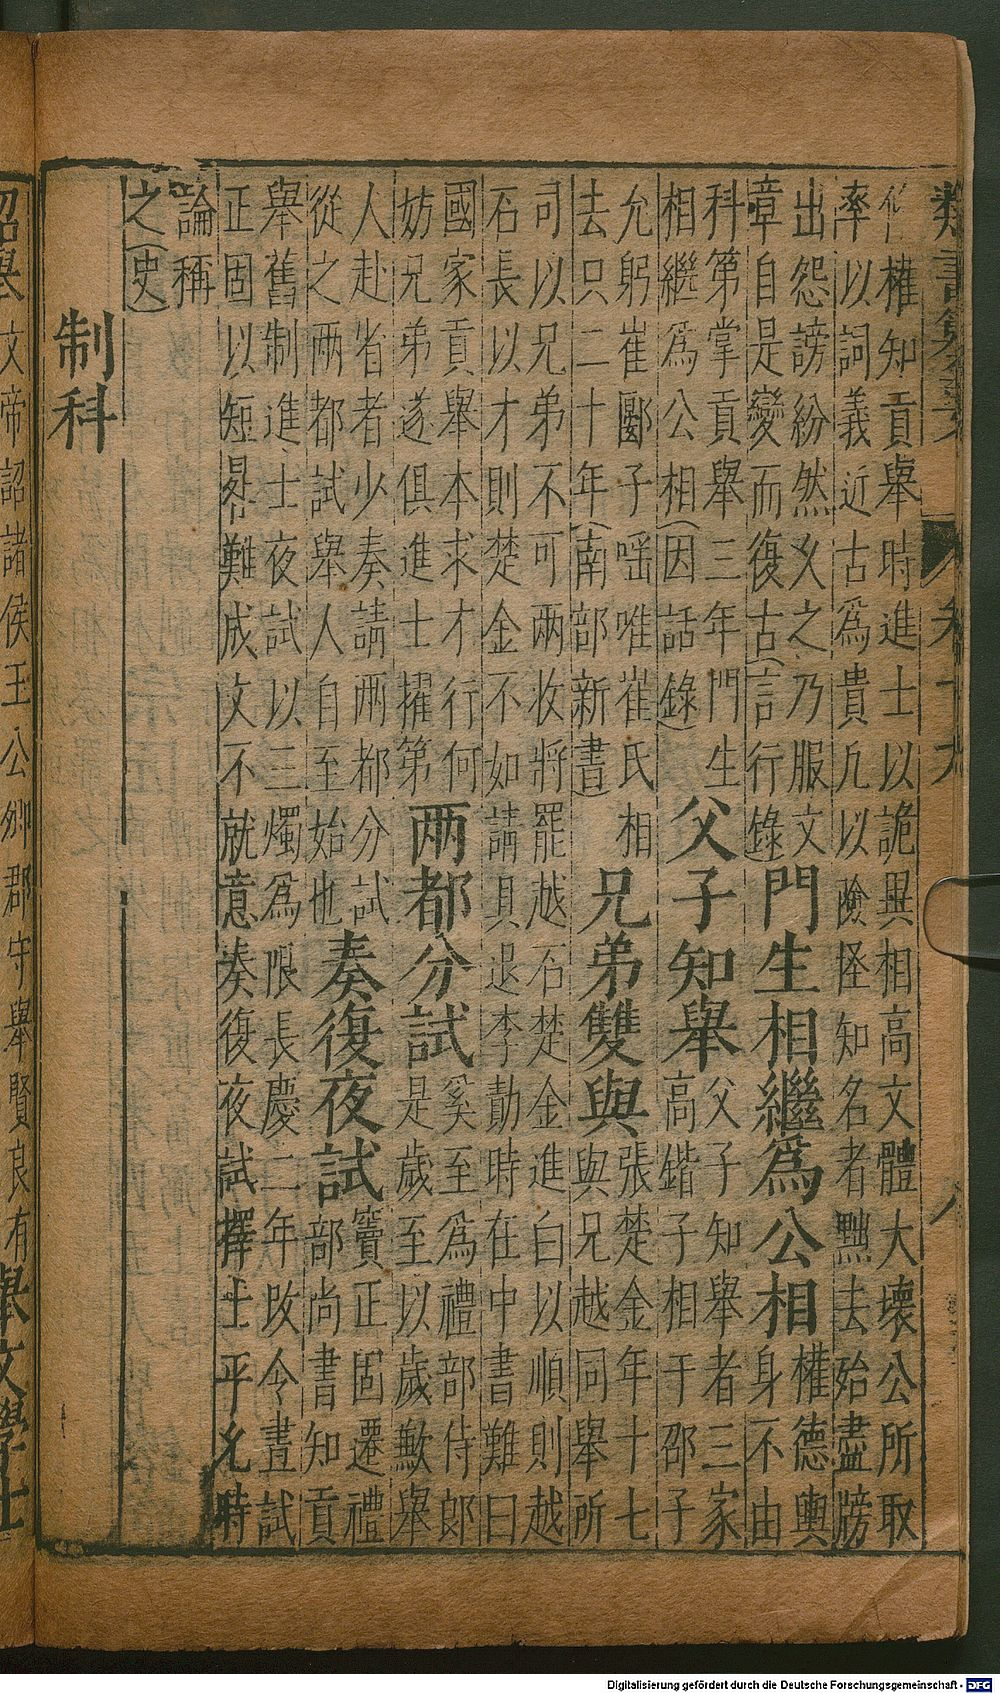 權知貢舉時進士以詭異相高文體大壞公所取
率以詞義近古為貴凡以險怪知名者黜去始盡牓
出怨謗紛然乆之乃服文
章自是變而復古(言行錄)
門生相繼爲公相
權德輿
身不由
科第掌貢舉三年門生
相繼爲公相(因話錄)
父子知舉
父子知舉者三家
高鍇子相于邵子
允躬崔郾子瑶唯崔氏相
去只二十年(南部新書)
兄弟雙與
張楚金年十七
與兄越同舉所
司以兄弟不可兩收將罷越石楚金進白以順則越
石長以才則楚金不如請具退李勣時在中書難曰
國家貢舉本求才行何
妨兄弟遂俱進士擢第
两都分試
奚至爲禮部侍郎
是歲至以歲歉舉
人赴省者少奏請两都分試
從之两都試舉人自至始也
奏復夜試
竇正固遷禮
部尚書知貢
舉舊制進士夜試以三燭爲限長慶二年改令晝試
正固以短晷難成文不就意湊復夜試擇士平允時
論稱
之(史)
制科
詔舉
文帝詔諸侯王公卿郡守舉賢良有
舉文學士
類書纂要
卷十六
八
Digitalisierung gefördert durch die Deutsche Forschungsgemeinschaft - DFG